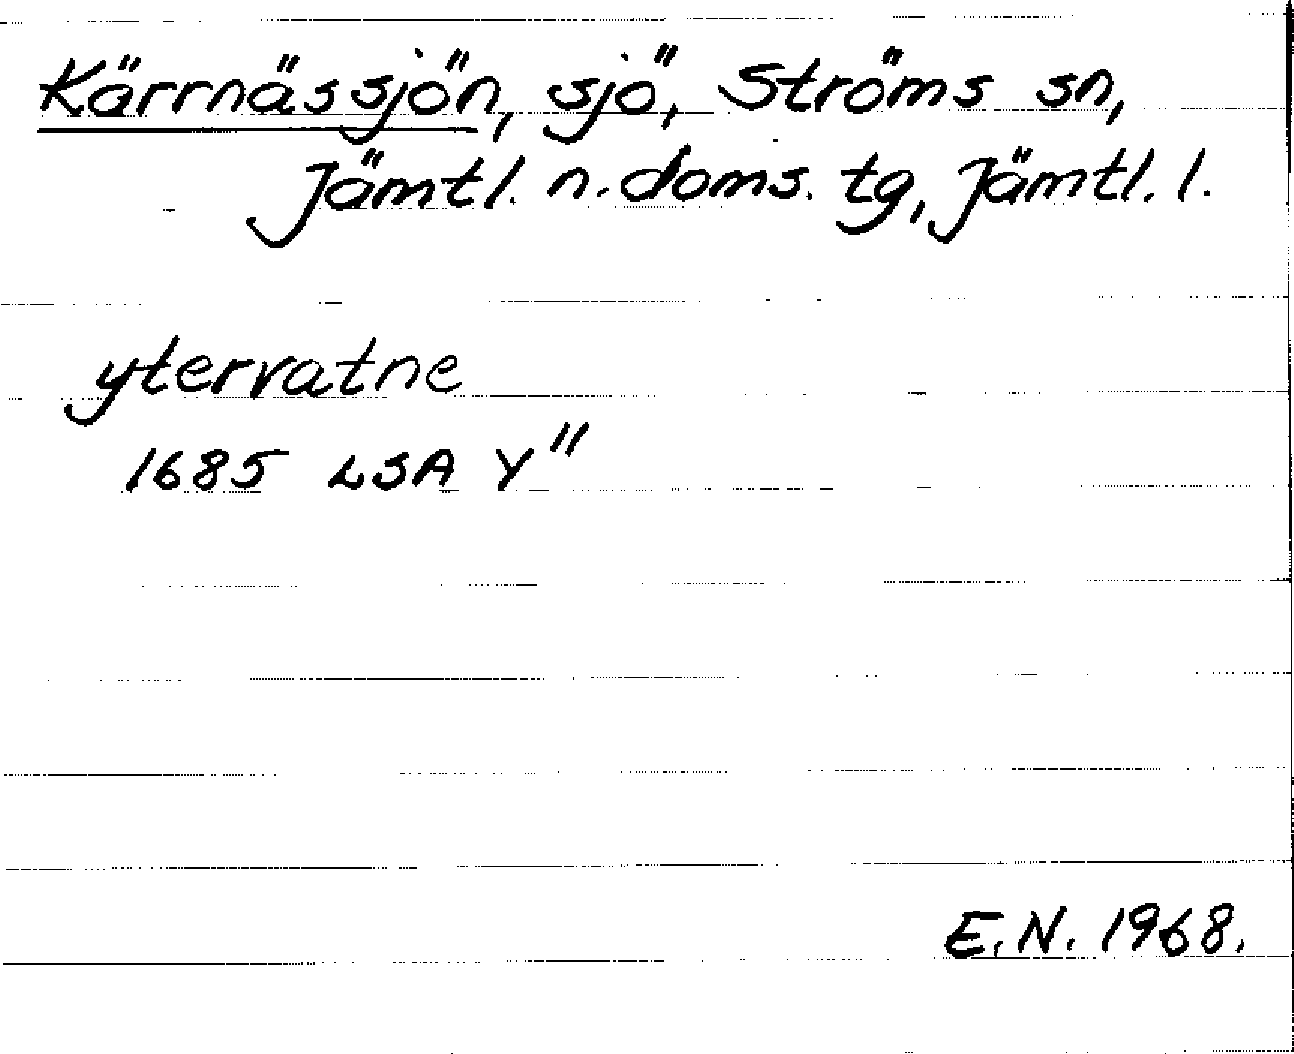 Kärrnässjön, sjö, Ströms sn,
Jämtl. n. doms. tg, Jämtl. l.
ytervatne
1685 LSA Y"
E.N. 1968.